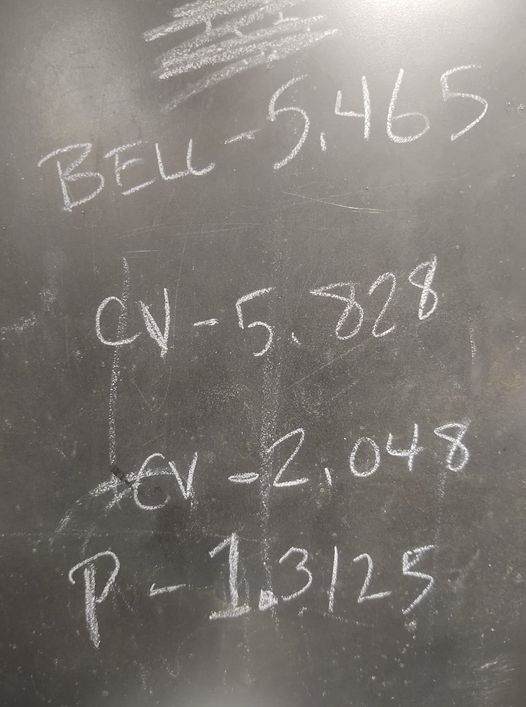 BELL - 5,465
CV - 5,828
EV - 2,048
P - 1.3125